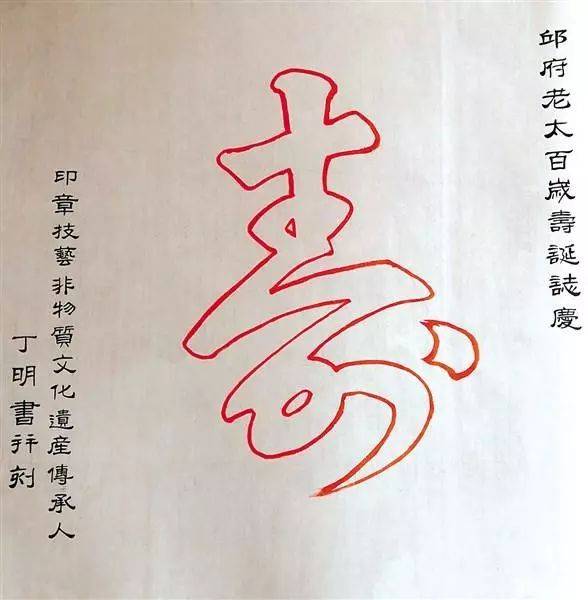 邱府老太百歲壽誕誌慶
寿
印章技藝非物质文化遺產傳承人
丁明書并刻